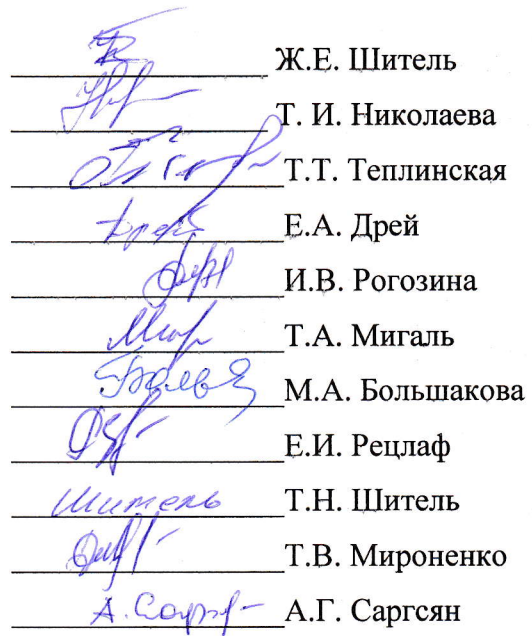 Ж.Е. Шитель
Т. И. Николаева
Т.Т. Теплинская
Е.А. Дрей
И.В. Рогозина
Т.А. Мигаль
М.А. Большакова
Е.И. Рецлаф
Шитель Т.Н. Шитель
Т.В. Мироненко
А.Г. Саргсян